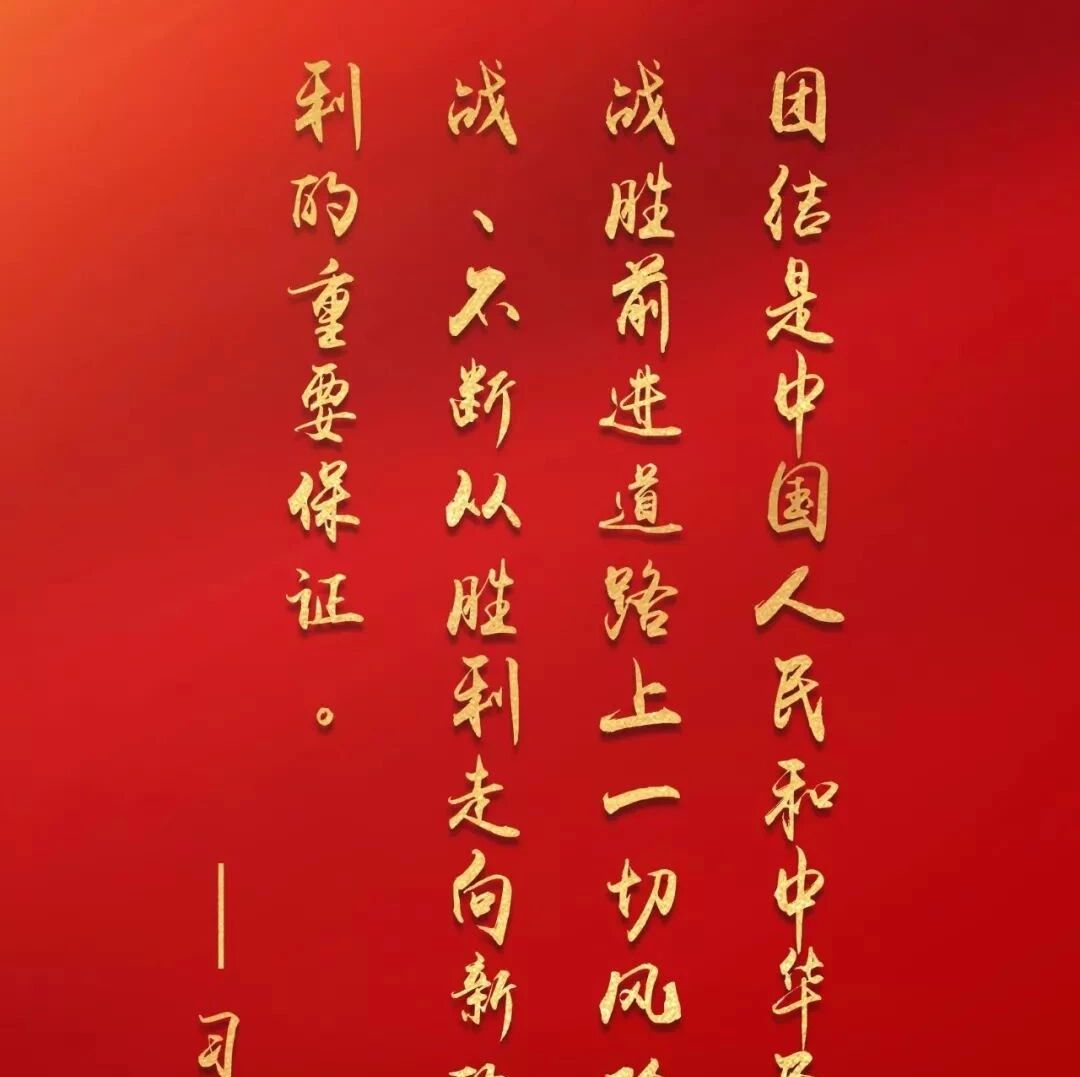 团结是中国人民和中华民
战胜前进道路上一切风险
战、不断从胜利走向新胜
利的重要保证。
——习